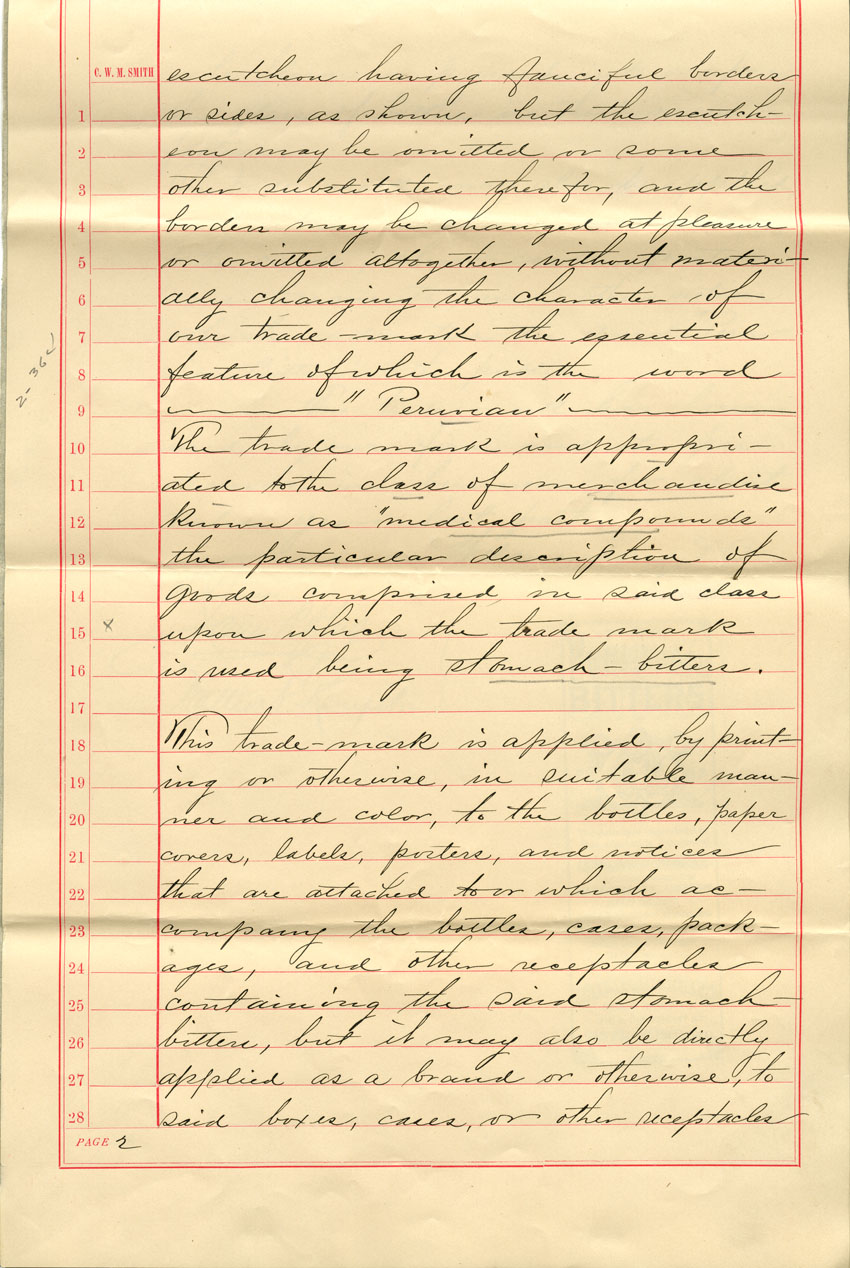 C. W. M. SMITH escutcheon having fanciful borders
1 or sides, as shown, but the escutch-
2 eon may be omitted or some
3 other substituted therefor, and the
4 borders may be changed at pleasure
5 or omitted altogether, without materi-
6 ally changing the character of
7 our trade-mark the essential
8 feature of which is the word
9 "Peruvian"
10 The trade mark is appropri-
11 ated to the class of merchandise
12 known as "medical compounds"
13 the particular description of
14 goods comprised in said class
15 x upon which the trade mark
16 is used being stomach-bitters.
17
18 This trade-mark is applied, by print-
19 ing or otherwise, in suitable man-
20 ner and color, to the bottles, paper
21 covers, labels, posters, and notices
22 that are attached to or which ac-
23 company the bottles, cases, pack-
24 ages, and other receptacles
25 containing the said stomach-
26 bitters, but it may also be directly
27 applied as a brand or otherwise, to
28 said boxes, cases, or other receptacles
PAGE 2